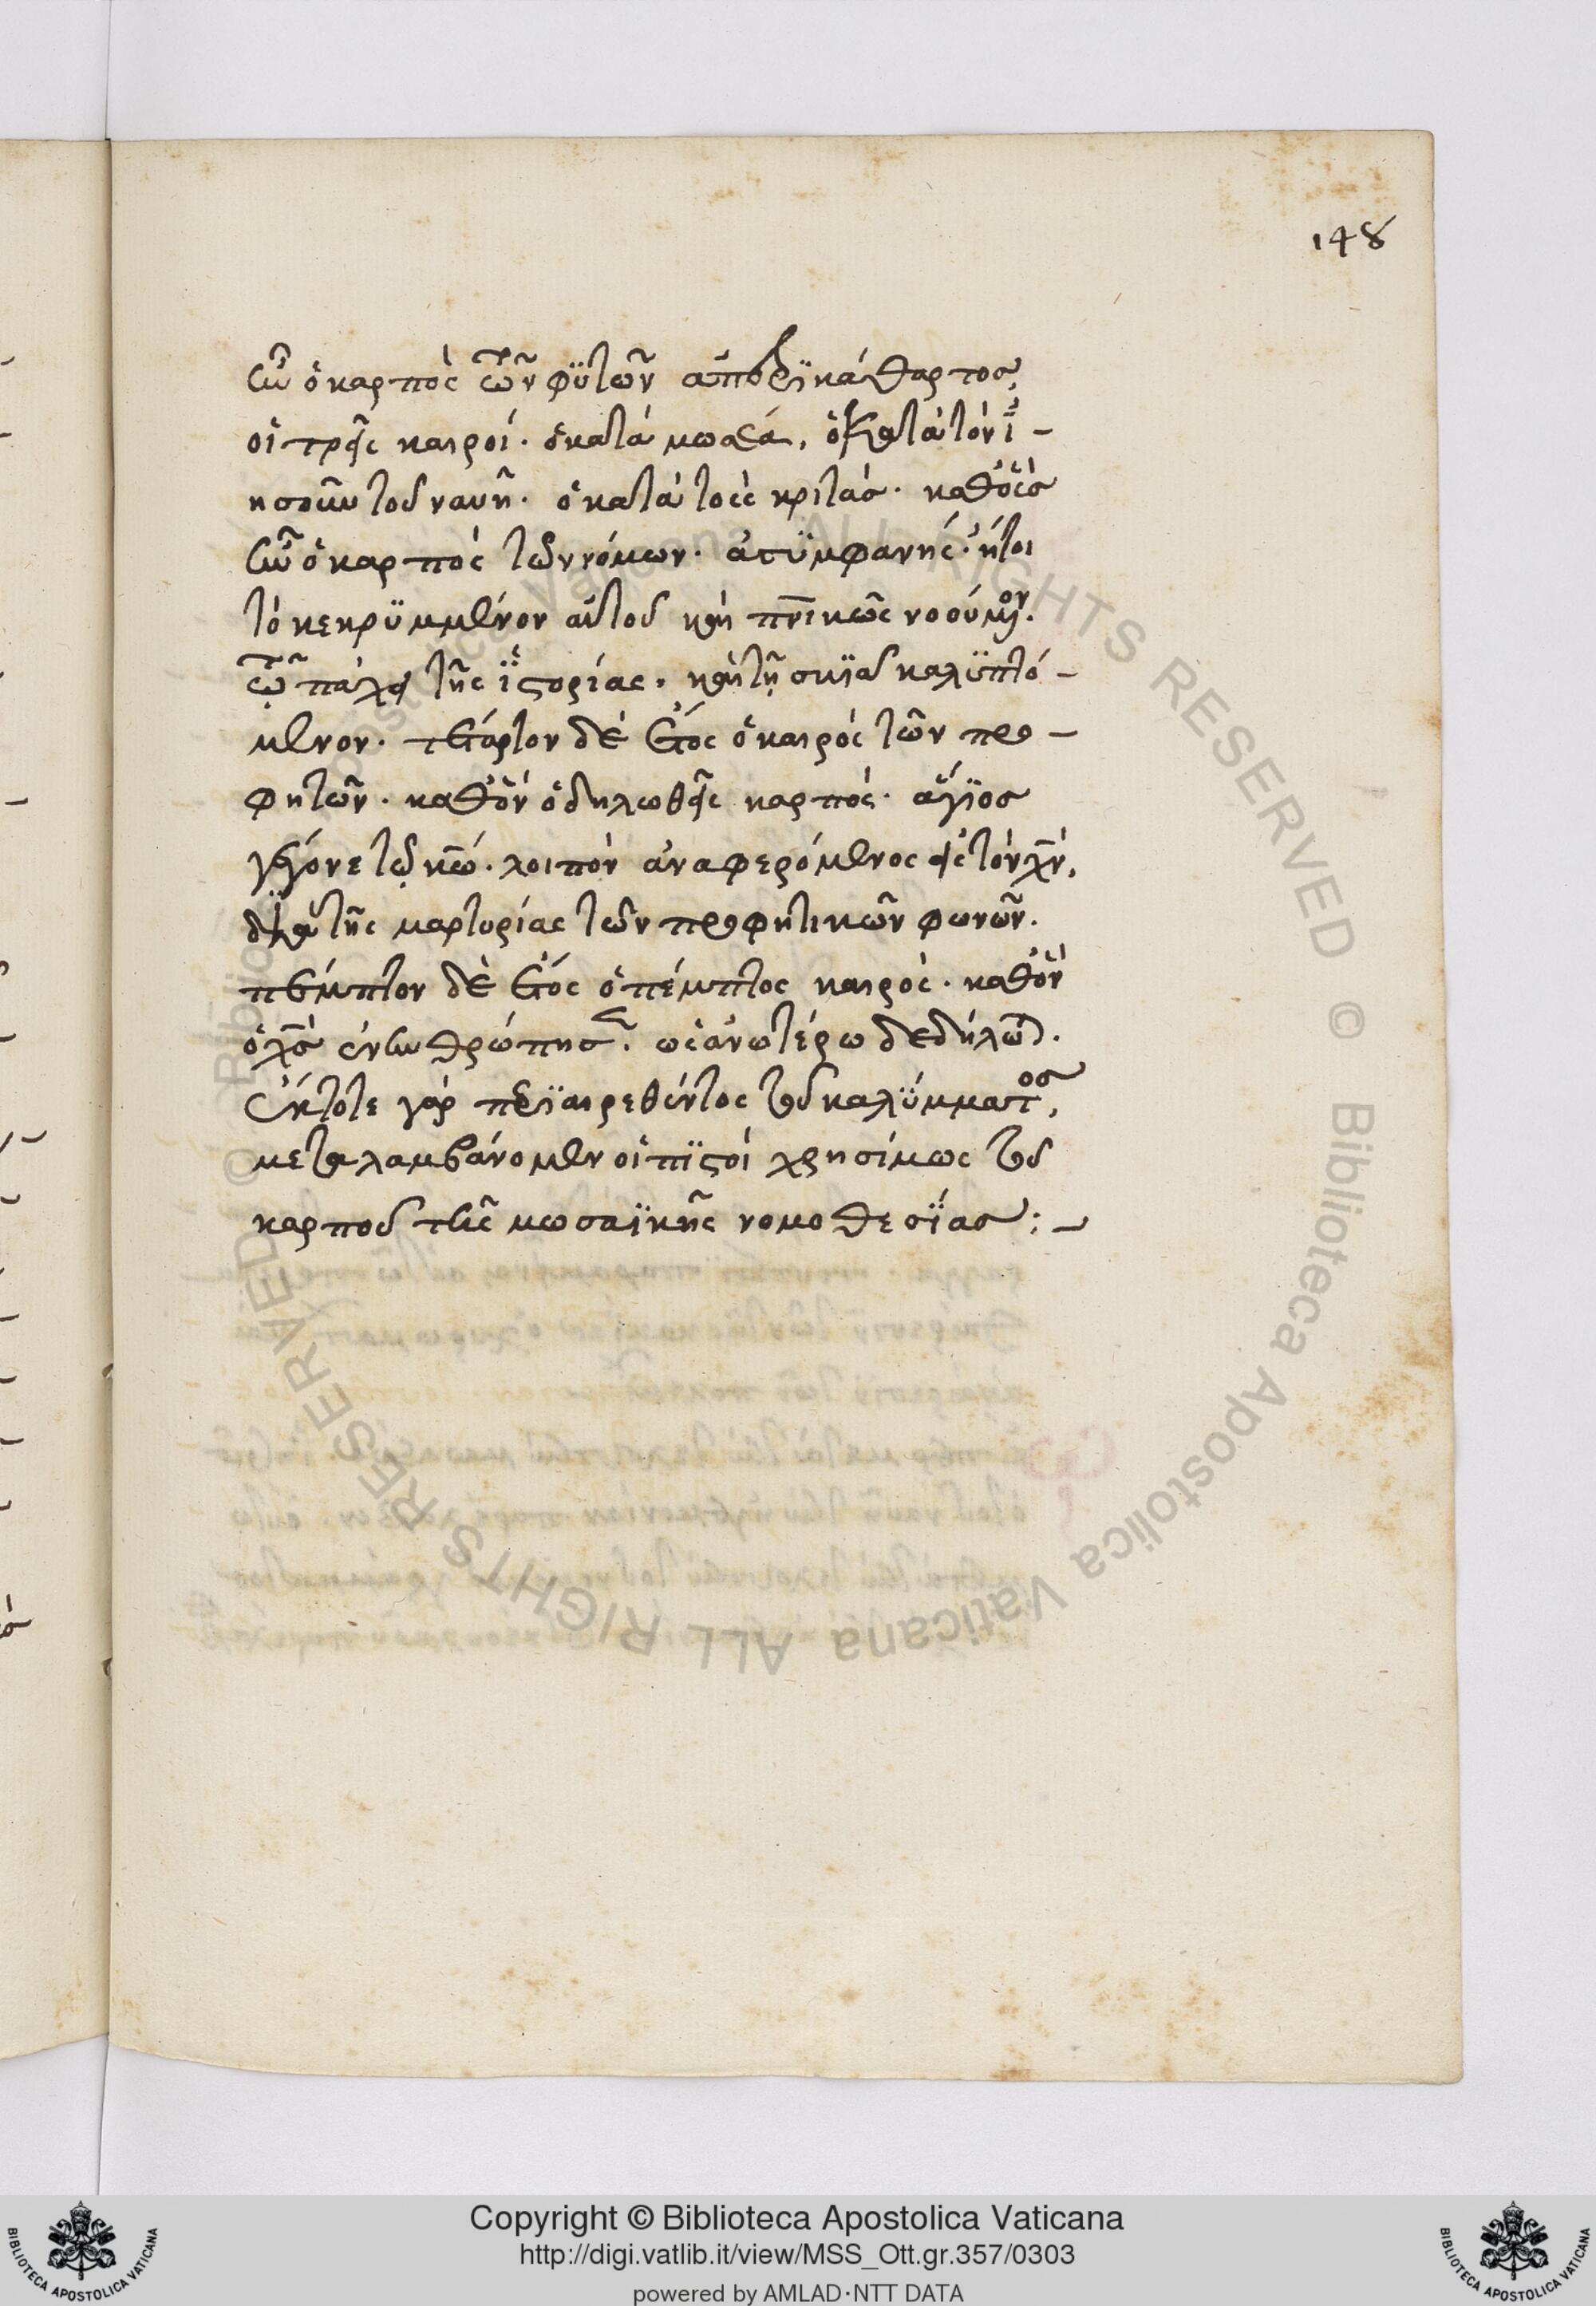 148
ἦν ὁ καρπὸς τῶν φϋτῶν ἀπερϊκάθαρτος,
οἱ τρεῖς καιροί. ὁ κατὰ μωσέα, ὁ κατὰ τὸν ἰ-
ησοῦν τοῦ ναυῆ. ὁ κατὰ τοὺς κριτάς. καθ' οὓς
ἦν ὁ καρπὸς τῶν νόμων. ἀσϋμφανής. ἤτοι
τὸ κεκρϋμμένον αὐτοῦ καὶ πνικῶς νοούμενον.
τῷ πάχει τῆς ἱστορίας. καὶ τῇ σκιᾷ καλϋπτό-
μενον. τέταρτον δὲ ἔτος ὁ καιρὸς τῶν προ-
φητῶν. καθ' ὃν ὁ δηλωθεὶς καρπὸς. ἅγϊος
γέγονε τῷ κω. λοιπὸν ἀναφερόμενος εἰς τὸν χν,
διὰ τῆς μαρτυρίας τῶν προφητικῶν φωνῶν.
πέμπτον δὲ ἔτος ὁ πέμπτος καιρὸς. καθ' ὃν
ὁ χς ἐνηνθρώπησεν. ὡς ἀνωτέρω δεδήλωται.
ἔκτοτε γὰρ περϊαιρεθέντος τοῦ καλϋμματος,
μεταλαμβάνομεν οἱ πϊστοὶ χρησίμως τοῦ
καρποῦ τῆς μωσαϊκῆς νομοθεσϊας:-
Copyright © Biblioteca Apostolica Vaticana
http://digi.vatlib.it/view/MSS_Ott.gr.357/0303
powered by AMLAD·NTT DATA
BIBLIOTECA APOSTOLICA VATICANA
BIBLIOTECA APOSTOLICA VATICANA
© Biblioteca Apostolica Vaticana ALL RIGHTS RESERVED
© Biblioteca Apostolica Vaticana ALL RIGHTS RESERVED